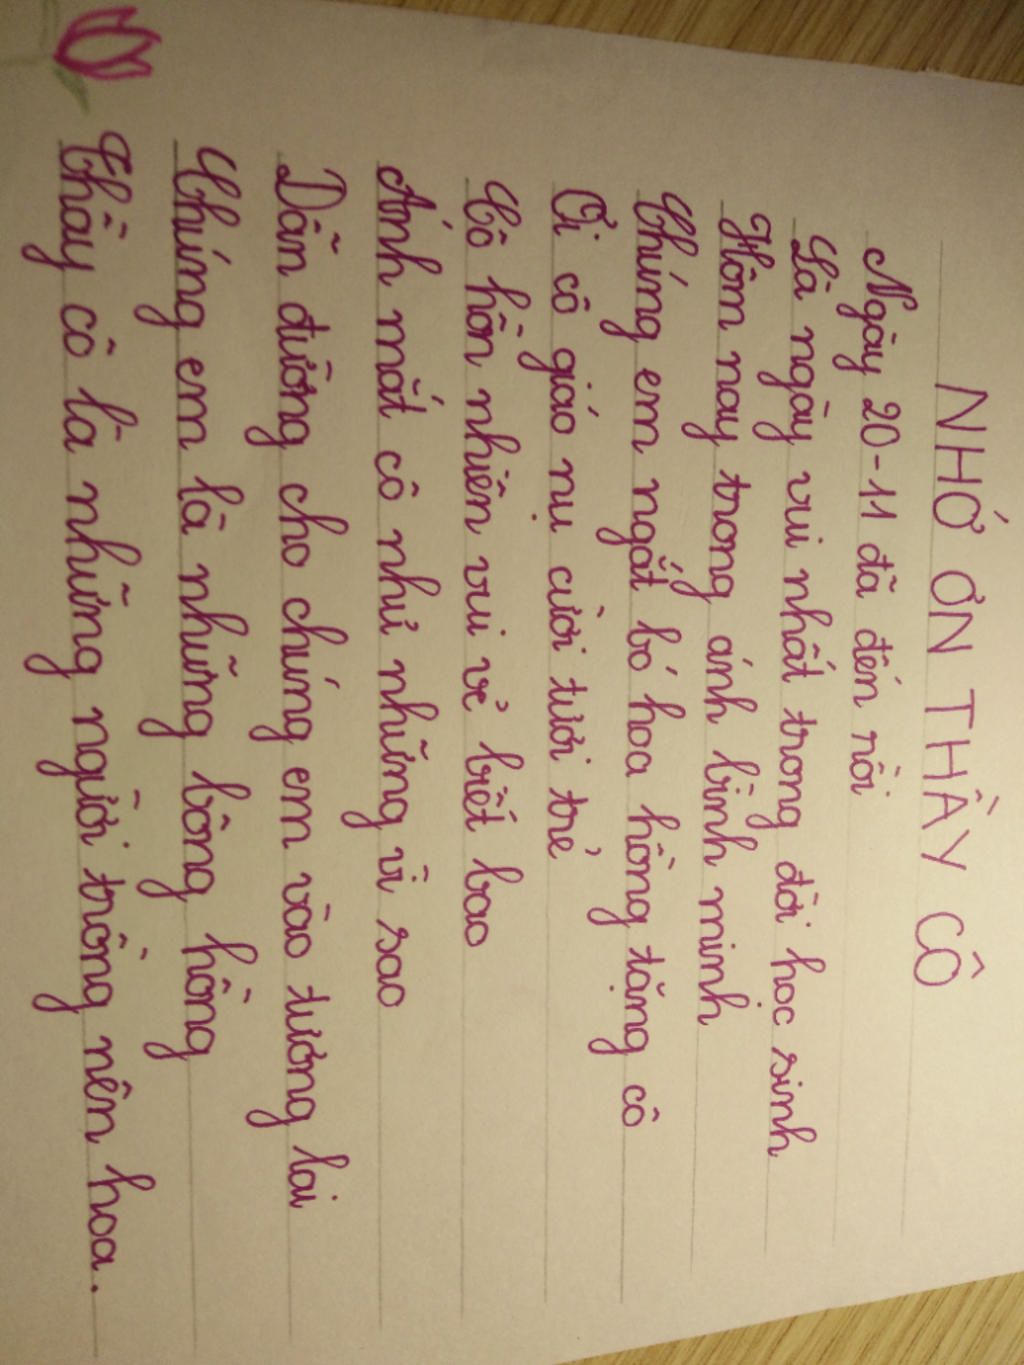 NHỚ ƠN THẦY CÔ
Ngày 20-11 đã đến rồi
Là ngày vui nhất trong đời học sinh
Hôm nay trong ánh bình minh
Chúng em ngắt bó hoa hồng tặng cô
Ơi cô giáo nụ cười tươi trẻ
Cô hồn nhiên vui vẻ biết bao
Ánh mắt cô như những vì sao
Dẫn đường cho chúng em vào tương lai
Chúng em là những bông hồng
Thầy cô là những người trồng nên hoa.